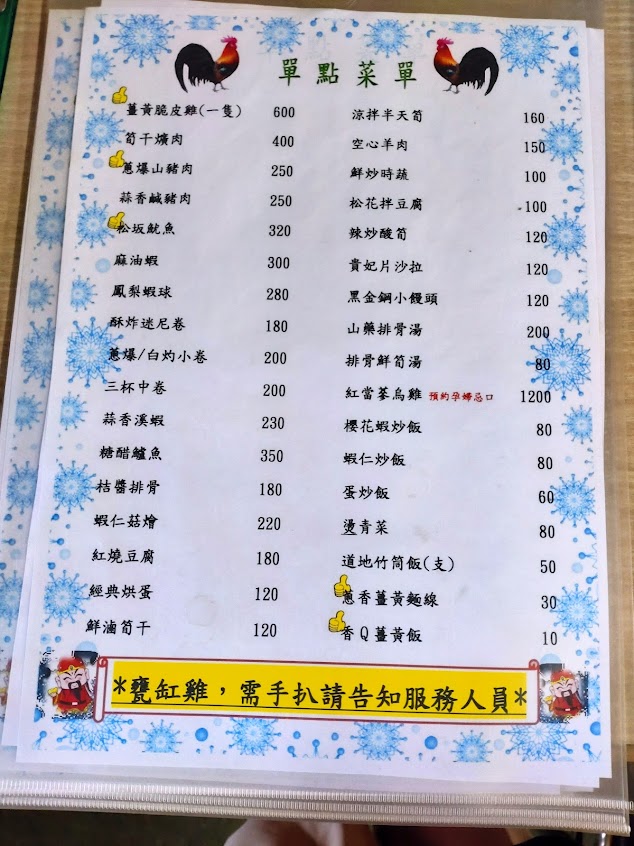 單點菜單
薑黃脆皮雞(一隻) 600
筍干爌肉 400
蔥爆山豬肉 250
蒜香鹹豬肉 250
松坂魷魚 320
麻油蝦 300
鳳梨蝦球 280
酥炸迷尼卷 180
蔥爆/白灼小卷 200
三杯中卷 200
蒜香溪蝦 230
糖醋鱸魚 350
桔醬排骨 180
蝦仁菇燴 220
紅燒豆腐 180
經典烘蛋 120
鮮滷筍干 120
涼拌半天筍 160
空心羊肉 150
鮮炒時蔬 100
松花拌豆腐 100
辣炒酸筍 120
貴妃片沙拉 120
黑金鋼小饅頭 120
山藥排骨湯 200
排骨鮮筍湯 80
紅當蔘烏雞 預約孕婦忌口 1200
櫻花蝦炒飯 80
蝦仁炒飯 80
蛋炒飯 60
燙青菜 80
道地竹筒飯(支) 50
蔥香薑黃麵線 30
香Q薑黃飯 10
*甕缸雞，需手扒請告知服務人員*